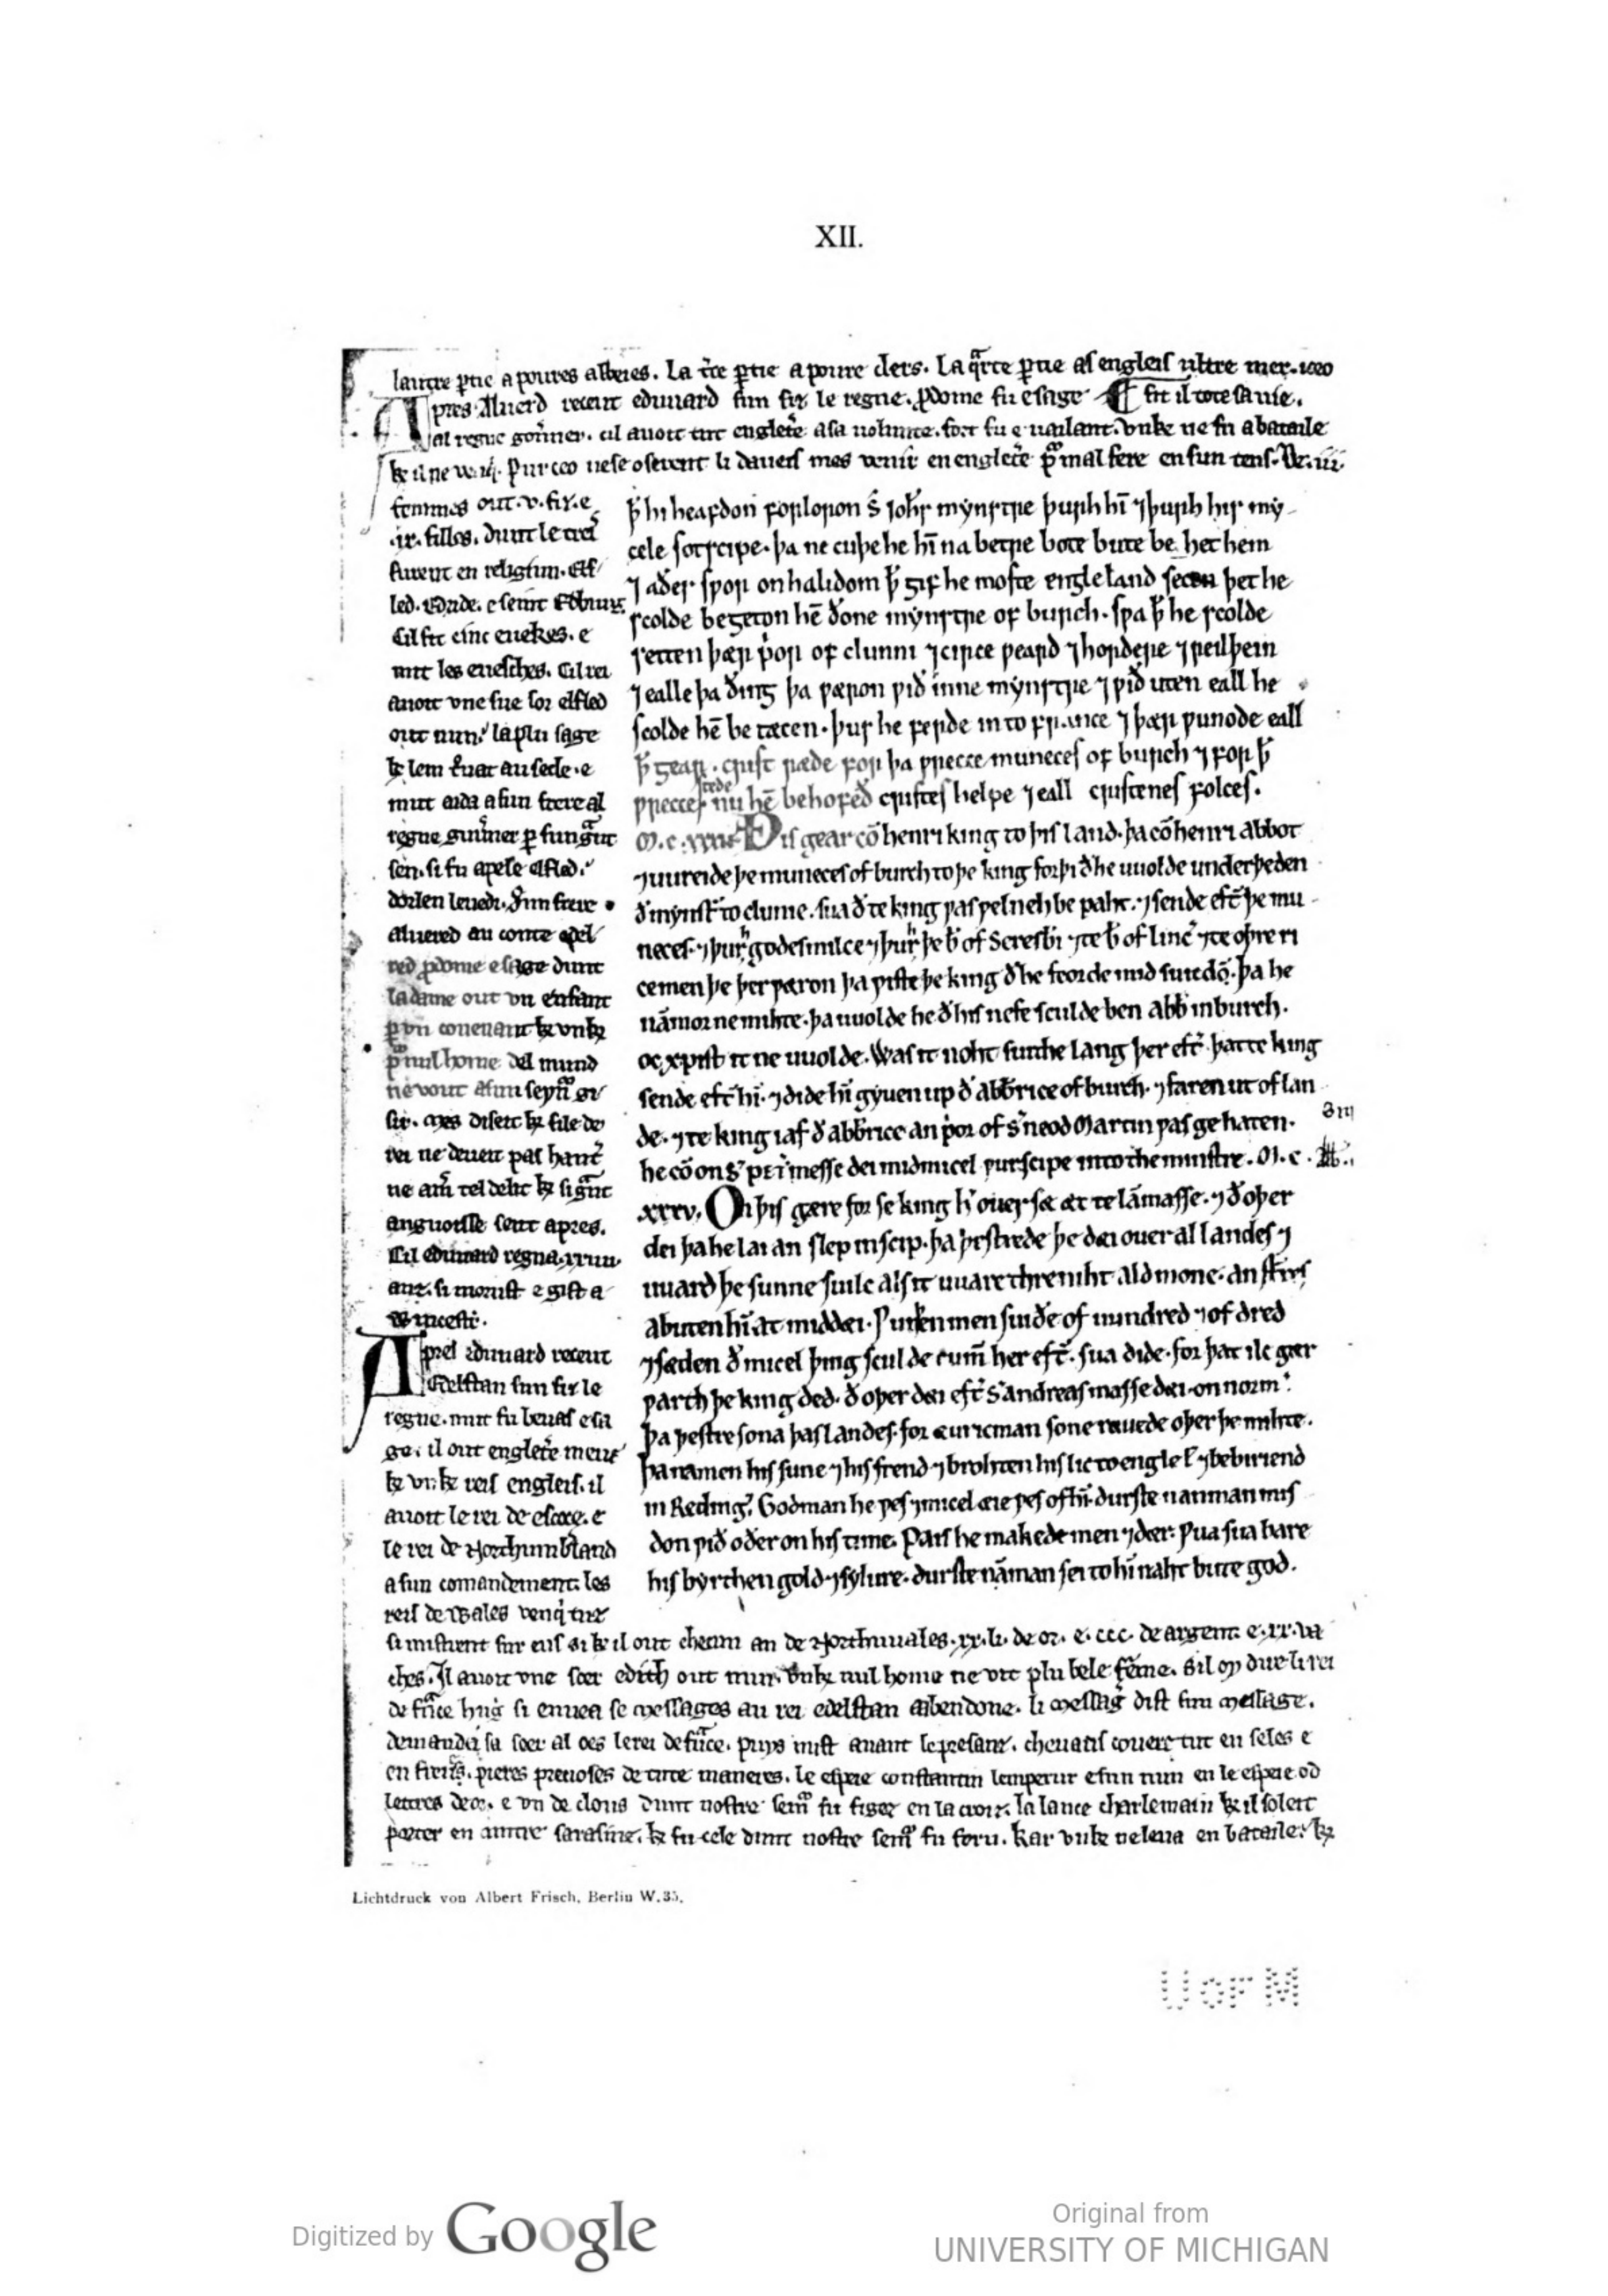 XII.
lautre ꝑtie a poures abbeies. La t̃ce ꝑtie a poure clers. La q̃rte ꝑtie as engleis ultre mer. ceo
pres Aluerd receut eduuard sun fiz le regne. ꝓdome fu e sage ¶ fit il tote sa uie.
al regne gou̾ner. cil auoit tut englet̾e a sa uolunte. fort fu e uailant. vnke ne fu a bataile
Pur ceo ne se oserent li daneis mes venir en englet̾e pur mal fere en sun tens.
femmes out .v. fiz. e
.ix. filles. dunt le treis
furent en religiun. Elf
led. Edride. e seint Edburg.
Cil fit cinc euekes. e
mit les euesches. Cil rei
auoit vne sue sor elfled
out nun. la plu sage
ke lem t̾uat au secle. e
mut aida a sun frere al
regne guu̾ner ꝑ sun gͣnt
sen. si fu apele elfled.
aluered au conte edel
red ꝓdome e sage dunt
la dame out vn enfant
ꝑ vn couenant ke vnke
nul home del mund
ne vout a sun seyn̾ gi
sir. mes diseit ke file de
rei ne deueit pas hant̾
ne am̾ tel delit ke si gͣnt
anguoisse seut apres.
Cil eduuard regna .xxiiii.
anz. si morust e gist a
Wincestr̾.
Apres eduuard receut
Edelstan sun fiz le
regne. mut fu beuas e sa
ge. il out englet̾e meuz
ke vnke reis engleis. il
auoit le rei de escoce. e
le rei de Northumbland
a sun comandement. les
reis de Wales venqi tuz
ꝥ hi heafdon forloron S̃ Joħs mynstre þurh hī ⁊ þurh his my
cele sotscipe. þa ne cuþe he hī na betre bote bute be het hem
⁊ aðes swor on halidom ꝥ gif he moste engleland secen þet he
scolde begeton hē ðone mynstre of burch. swa ꝥ he scolde
setten þær p̾or of clunni ⁊ circe weard ⁊ hordere ⁊ reilþein
⁊ ealle þa ðing þa wæron wið inne mynstre ⁊ wið uten eall he
scolde hē be tæcen. þus he ferde into france ⁊ þær wunode eall
ꝥ gear. crist ræde for þa wrecce muneces of burch ⁊ for ꝥ
wrecce stede nu hē behofeð cristes helpe ⁊ eall cristenes folces.
M.c.xxxii Ðis gear cō henri king to þis land. þa cō henri abbot
⁊ uureide þe muneces of burch to þe king forþi ð he uuolde underþeden
ð mynstr̾ to clunie. sua ð te king was wel neh be paht. ⁊ sende eft̾ þe mu
neces. ⁊ þurh godes milce ⁊ þurh þe b̃ of Seresb̾i ⁊ te b̃ of linc̾ ⁊ te oþre ri
ce men þe þer wæron þa wiste þe king ð he feorde mid suicdō. þa he
nāmor ne mihte. þa uuolde he ð his nefe sculde ben abb̃ in burch.
oc xpist it ne uuolde. Was it noht suithe lang þer eft̾ þat te king
sende eft̾ hī. ⁊ dide hī gyuen up ð abb̃rice of burch. ⁊ faren ut of lan
de. ⁊ te king iaf ð abb̃rice an p̾or of S̾ neod Martin was ge haten.
he cō on S̾ pet̾ messe dei mid micel wurscipe into the minstre. M.c.
xxxv. On þis gære for se king h̾ ouer sæ æt te lāmasse. ⁊ ð oþer
dei þa he lai an slep in scip. þa þestrede þe dæi ouer al landes ⁊
uuard þe sunne suilc als it uuare thre niht ald mone. an sterres
abuten hī at middæi. Wurþen men suiðe of uundred ⁊ of dred
⁊ sæden ð micel þing sculde cumē her eft̾. sua dide. for þat ilc gær
warth þe king ded. ð oþer dæi eft̾ S̾ andreas masse dæi. on norm̾.
Þa þestre sona þas landes. for æuric man sone ræuede oþer þe mihte.
Þa namen his sune ⁊ his frend ⁊ brohten his lic to englel̾ ⁊ bebiriend
in Reding̾. God man he wes ⁊ micel æie wes of hī. durste nan man mis
don wið oðer on his time. Pais he makede men ⁊ dær. Wua sua bare
his byrthen gold ⁊ sylure. durste nāman sei to hī naht bute god.
si mistrent sur eus si ke il out checun an de Northuuales .xx. li. de or. e. ccc. de argent. e .xx. va
ches. Il auoit vne soer edith out nun. vnke nul home ne vit plu bele fēme. Sil oy duc li rei
de fͣnce hug̾ si enuea se messages au rei edelstan abendone. li messag̾ dist sun message.
demanda sa soer al oes le rei de fͣnce. puys mist auant le presant. cheuaus couert tut en seles e
en freins. pieres preuoses de tute maneres. le espeie constantin lemperur e sun nun en le espeie od
lettres de or. e vn de clous dunt nostre sem̾ fu figez en la croiz. la lance charlemain ke il soleit
porter en cuntre sarasine. ke fu cele dunt nostre sem̾ fu feru. kar vnke ne leua en bataile. ke
Lichtdruck von Albert Frisch, Berlin W.35.
U OF M
Digitized by Google
Original from
UNIVERSITY OF MICHIGAN